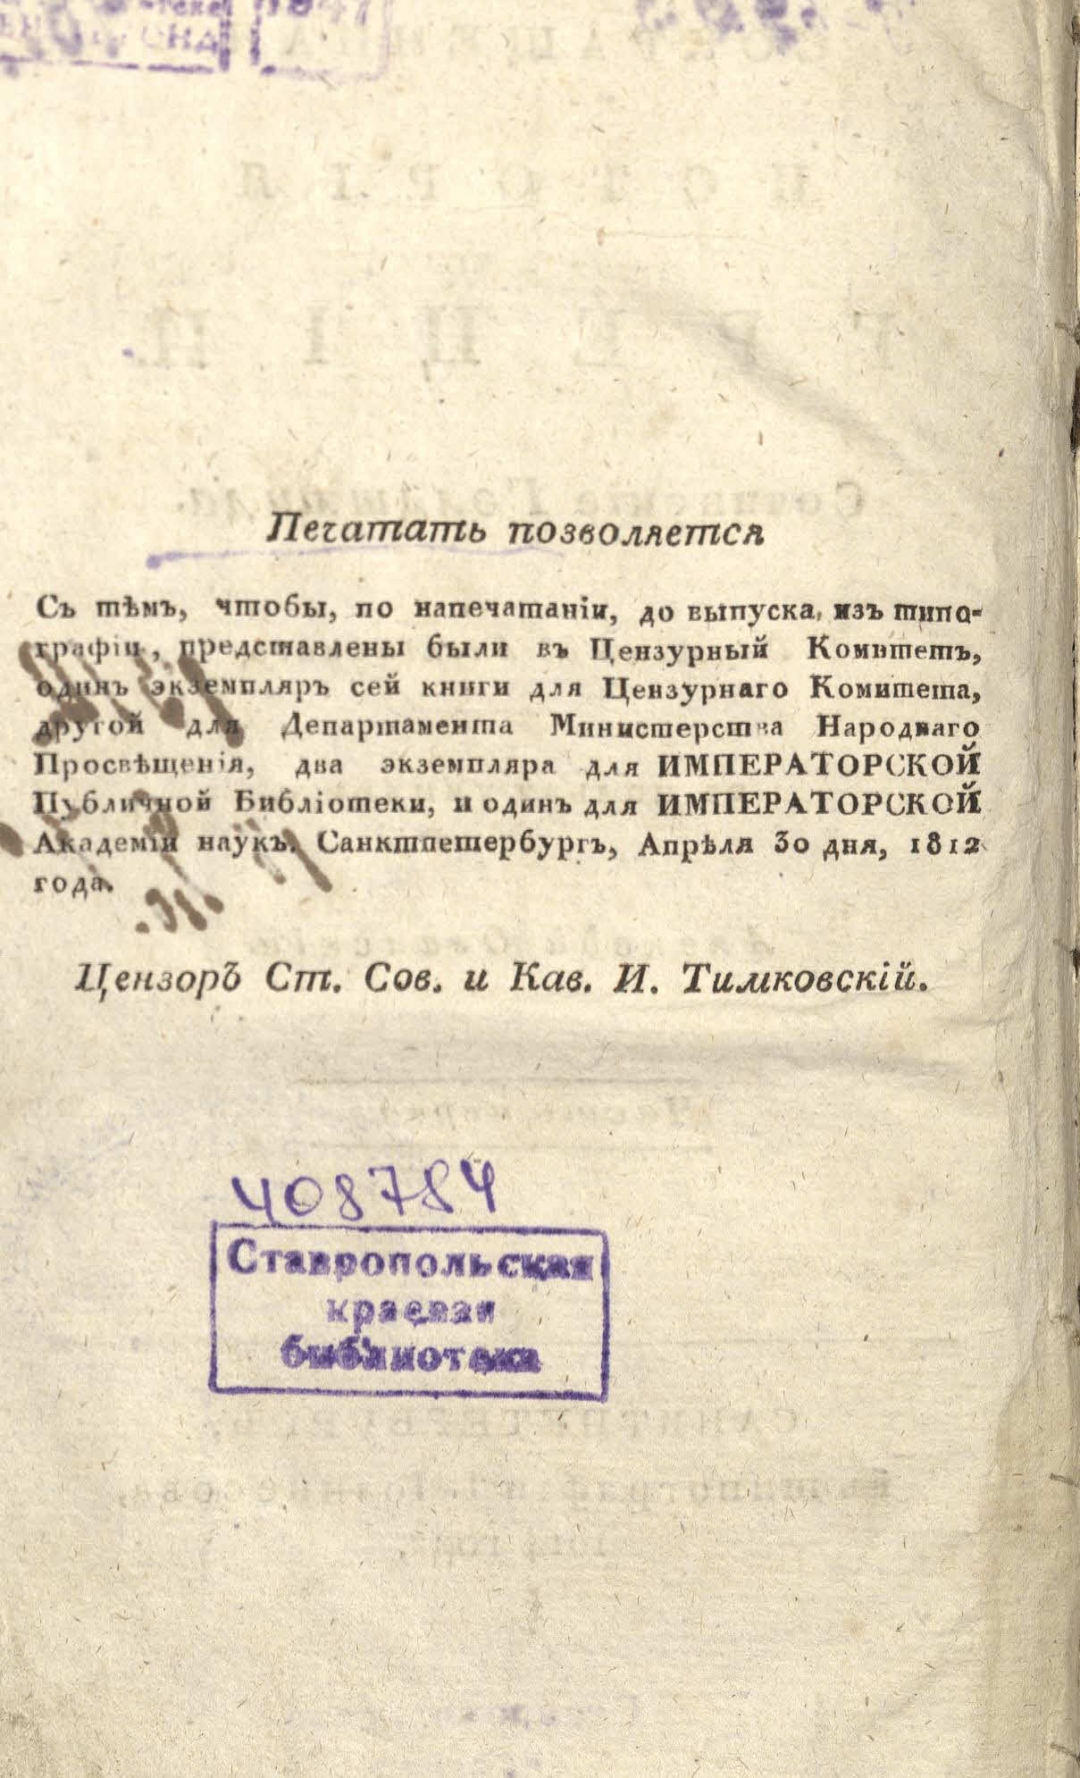 Печатать позволяется
Съ тѣмъ, чтобы, по напечатаніи, до выпуска, изъ типо-
графіи, представлены были въ Цензурный Комитетъ,
одинъ экземпляръ сей книги для Цензурнаго Комитета,
другой для Департамента Министерства Народнаго
Просвѣщенія, два экземпляра для ИМПЕРАТОРСКОЙ
Публичной Библіотеки, и одинъ для ИМПЕРАТОРСКОЙ
Академіи наукъ. Санктпетербургъ, Апрѣля 30 дня, 1812
года.
Цензоръ Ст. Сов. и Кав. И. Тимковскій.
408784
Ставропольская
краевая
библиотека